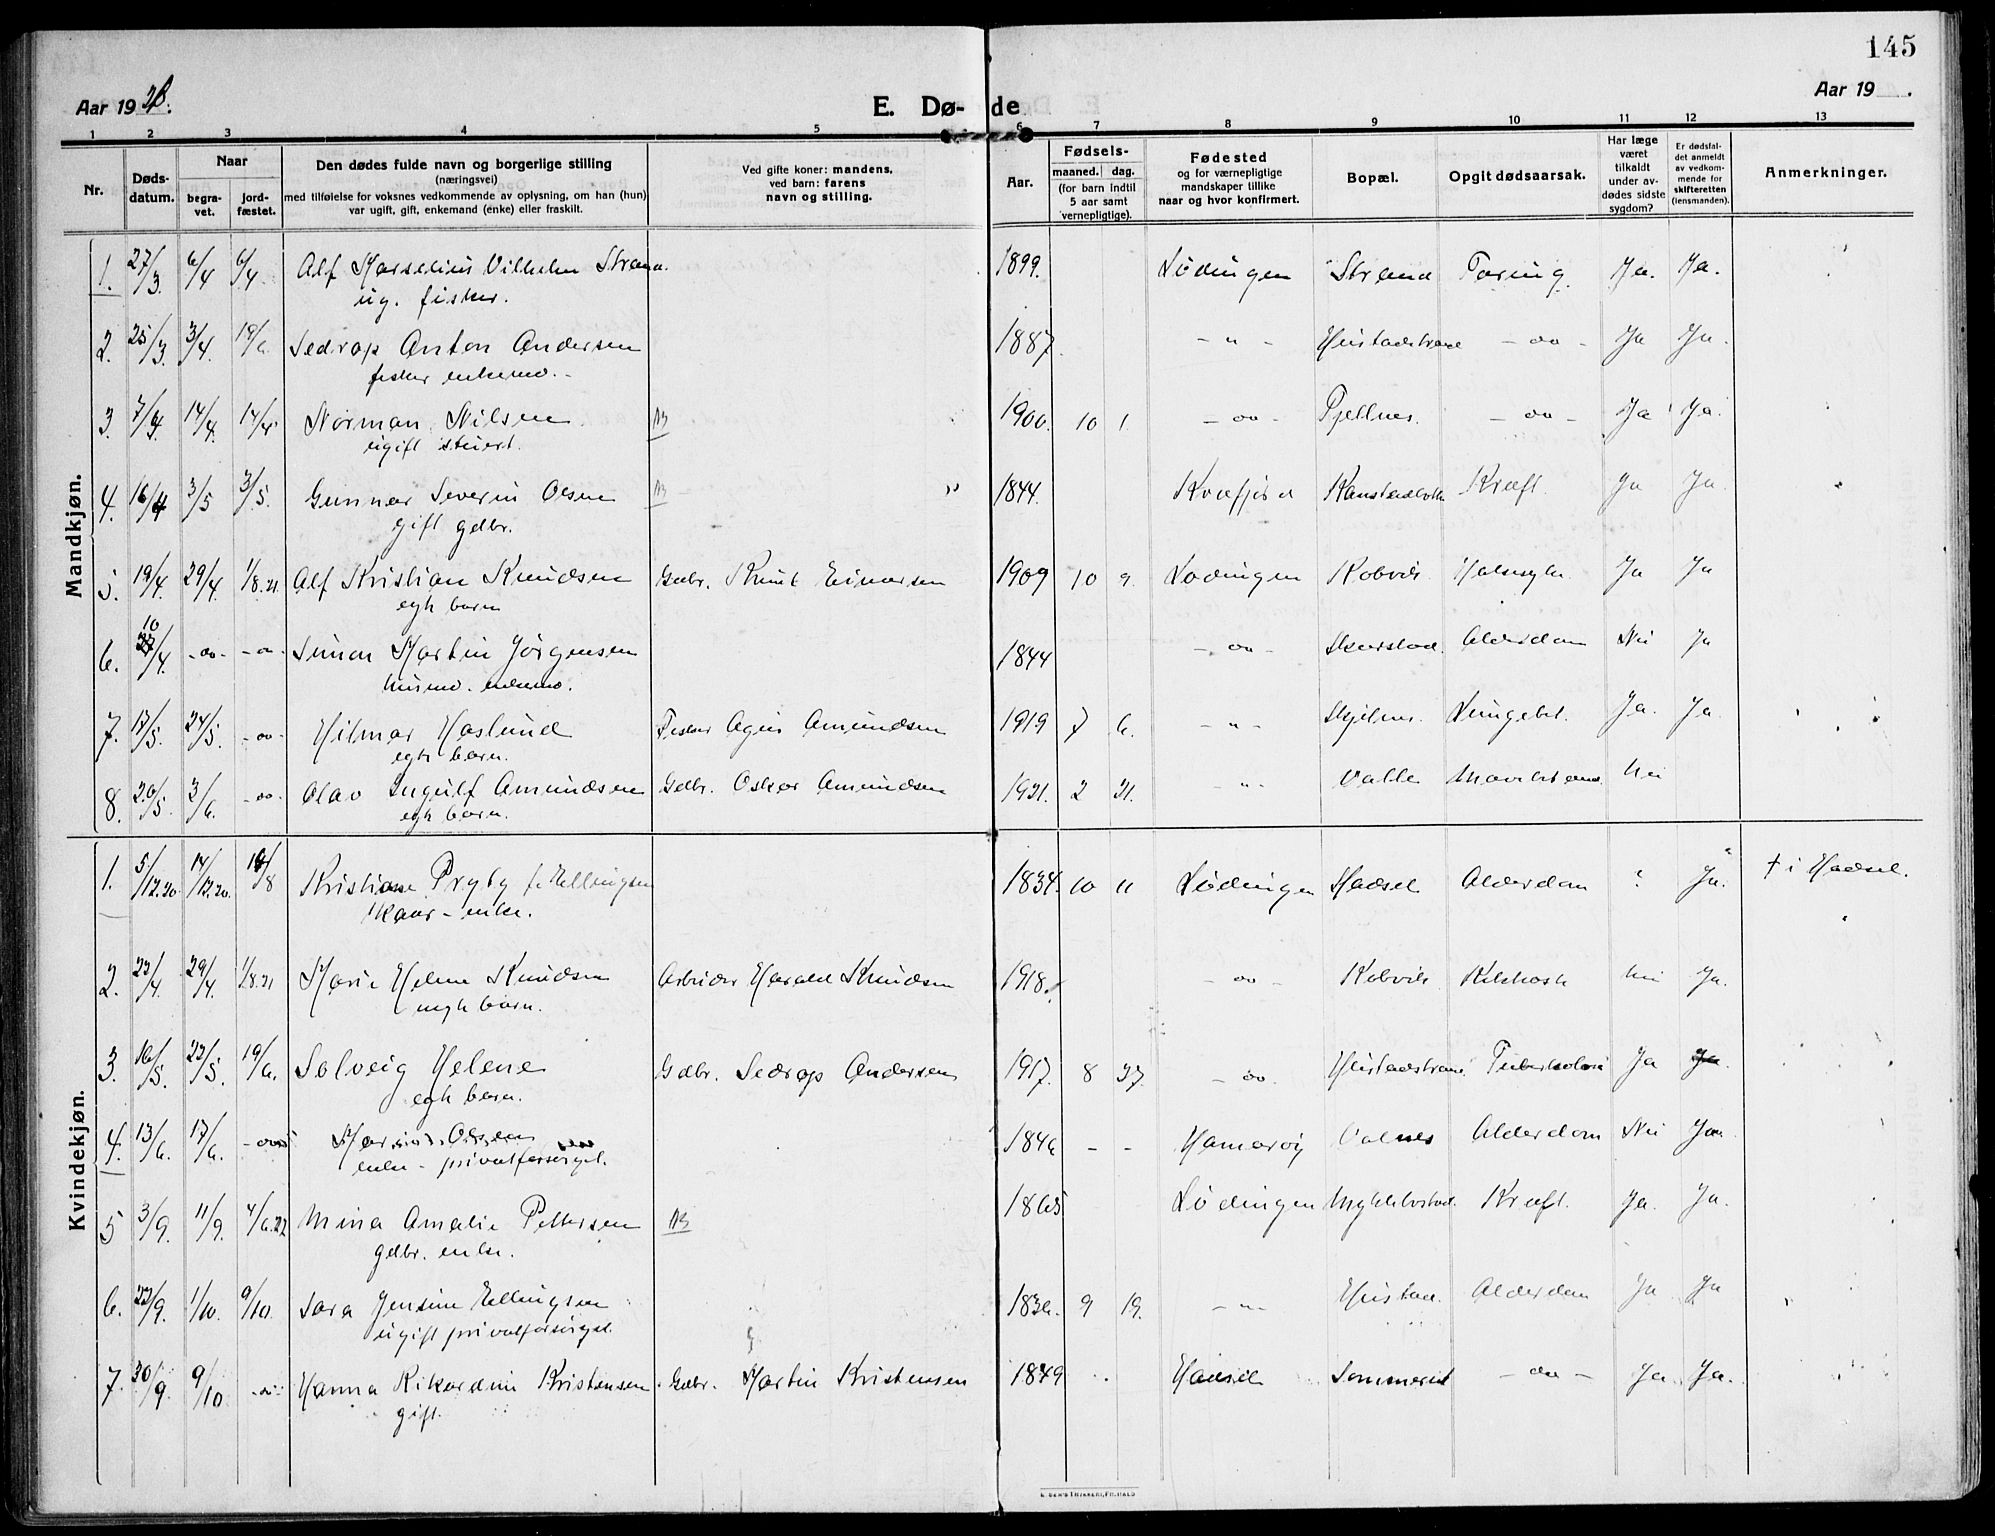 145
Aar 19
E. Dø- de
Aar 19 .
1 2 3 4 5 6 7 8 9 10 11 12 13
Nr.
Døds-
datum.
Naar
begra-
vet.
jord-
fæstet.
Den dødes fulde navn og borgerlige stilling
(næringsvei)
med tilføielse for voksnes vedkommende av oplysning, om han (hun)
var ugift, gift, enkemand (enke) eller fraskilt.
Ved gifte koner: mandens,
ved barn: farens
navn og stilling.
Aar.
Fødsels-
maaned. dag.
(for barn indtil
5 aar samt
vernepligtige).
Fødested
og for værnepligtige
mandskaper tillike
naar og hvor konfirmert.
Bopæl.
Opgit dødsaarsak.
Har læge
været
tilkaldt
under av-
dødes sidste
sygdom?
Er dødsfal-
det anmeldt
av vedkom-
mende for
skifteretten
(lensmanden).
Anmerkninger.
Mandkjøn.
1. 27/3 6/4 6/4 Alf Marselius Vilhelm Strand 1899. Lødingen Strand Tæring Ja. Ja.
ug. fisker.
2. 25/3 3/4. 19/6 Sedrop Anton Andersen 1887. - " - - oo - Ja Ja.
fisker enkem.
3. 7/4 14/4. 14/4 Norman Nilsen 1900. 10 1. - oo - - oo - Ja Ja.
ugift stuert.
4. 16/4 3/5 3/5. Gunnar Severin Olsen 1844. Kvæfjord Kræft. Ja Ja.
gift gdbr.
5. 19/4. 29/4. 1/8.21 Alf Kristian Knudsen Gdbr. Knut Einarsen 1909 10 9. Lødingen Kobvik Halssyke Ja Ja
egte barn
6. 10/4. - oo - - " - Simon Martin Jørgensen 1844 - oo - Skarstad. Alderdom Nei Ja
husmd. enkemd.
7. 17/5. 24/5. - oo - Hilmar Haslund Fisker Agin Amundsen 1919 7 6. - " - Lungebet. Ja. Ja.
egte barn.
8. 20/5. 3/6. - oo - Olav Ingulf Amundsen Gdbr. Oskar Amundsen 1921. 2 21. - " - Valle Nei
egte barn.
Kvindekjøn.
1. 5/12.20 14/12.20. /8 Kristiane Pryty f. Ellingsen 1834. 10 11 Lødingen Hadsel Alderdom ? Ja. † i Hadsel.
kaar - enke.
2. 23/4. 29/4. 1/8.21 Marie Helene Knudsen Arbeider Harald Knudsen 1918. - oo - Kobvik Kikhoste Nei Ja.
uegte barn.
3. 16/5. 23/5. 19/6. Solveig Helene Gdbr. Sedrop Andersen 1917. 8 27 - oo. Tuberkulose Ja Ja
egte barn.
4. 13/6. 17/6. - oo - Olsen 1846 - - Hamarøy Valnes Alderdom Nei Ja
enke - privatforsørget.
5 3/9. 11/9. 4/6.22 Mina Amalie Pettersen 1865 Lødingen Myklebostad. Kræft. Ja. Ja.
gdbr. enke.
6. 23/9. 1/10. 9/10. Sara Jensine Ellingsen 1836. 9 19. - " - Hustad. Alderdom Ja Ja
ugift privatforsørget.
7. 30/9. 9/10 - " - Hanna Rikardine Kristensen Gdbr. Martin Kristensen 1849 Hadsel Sommerset - oo - Ja Ja.
gift.